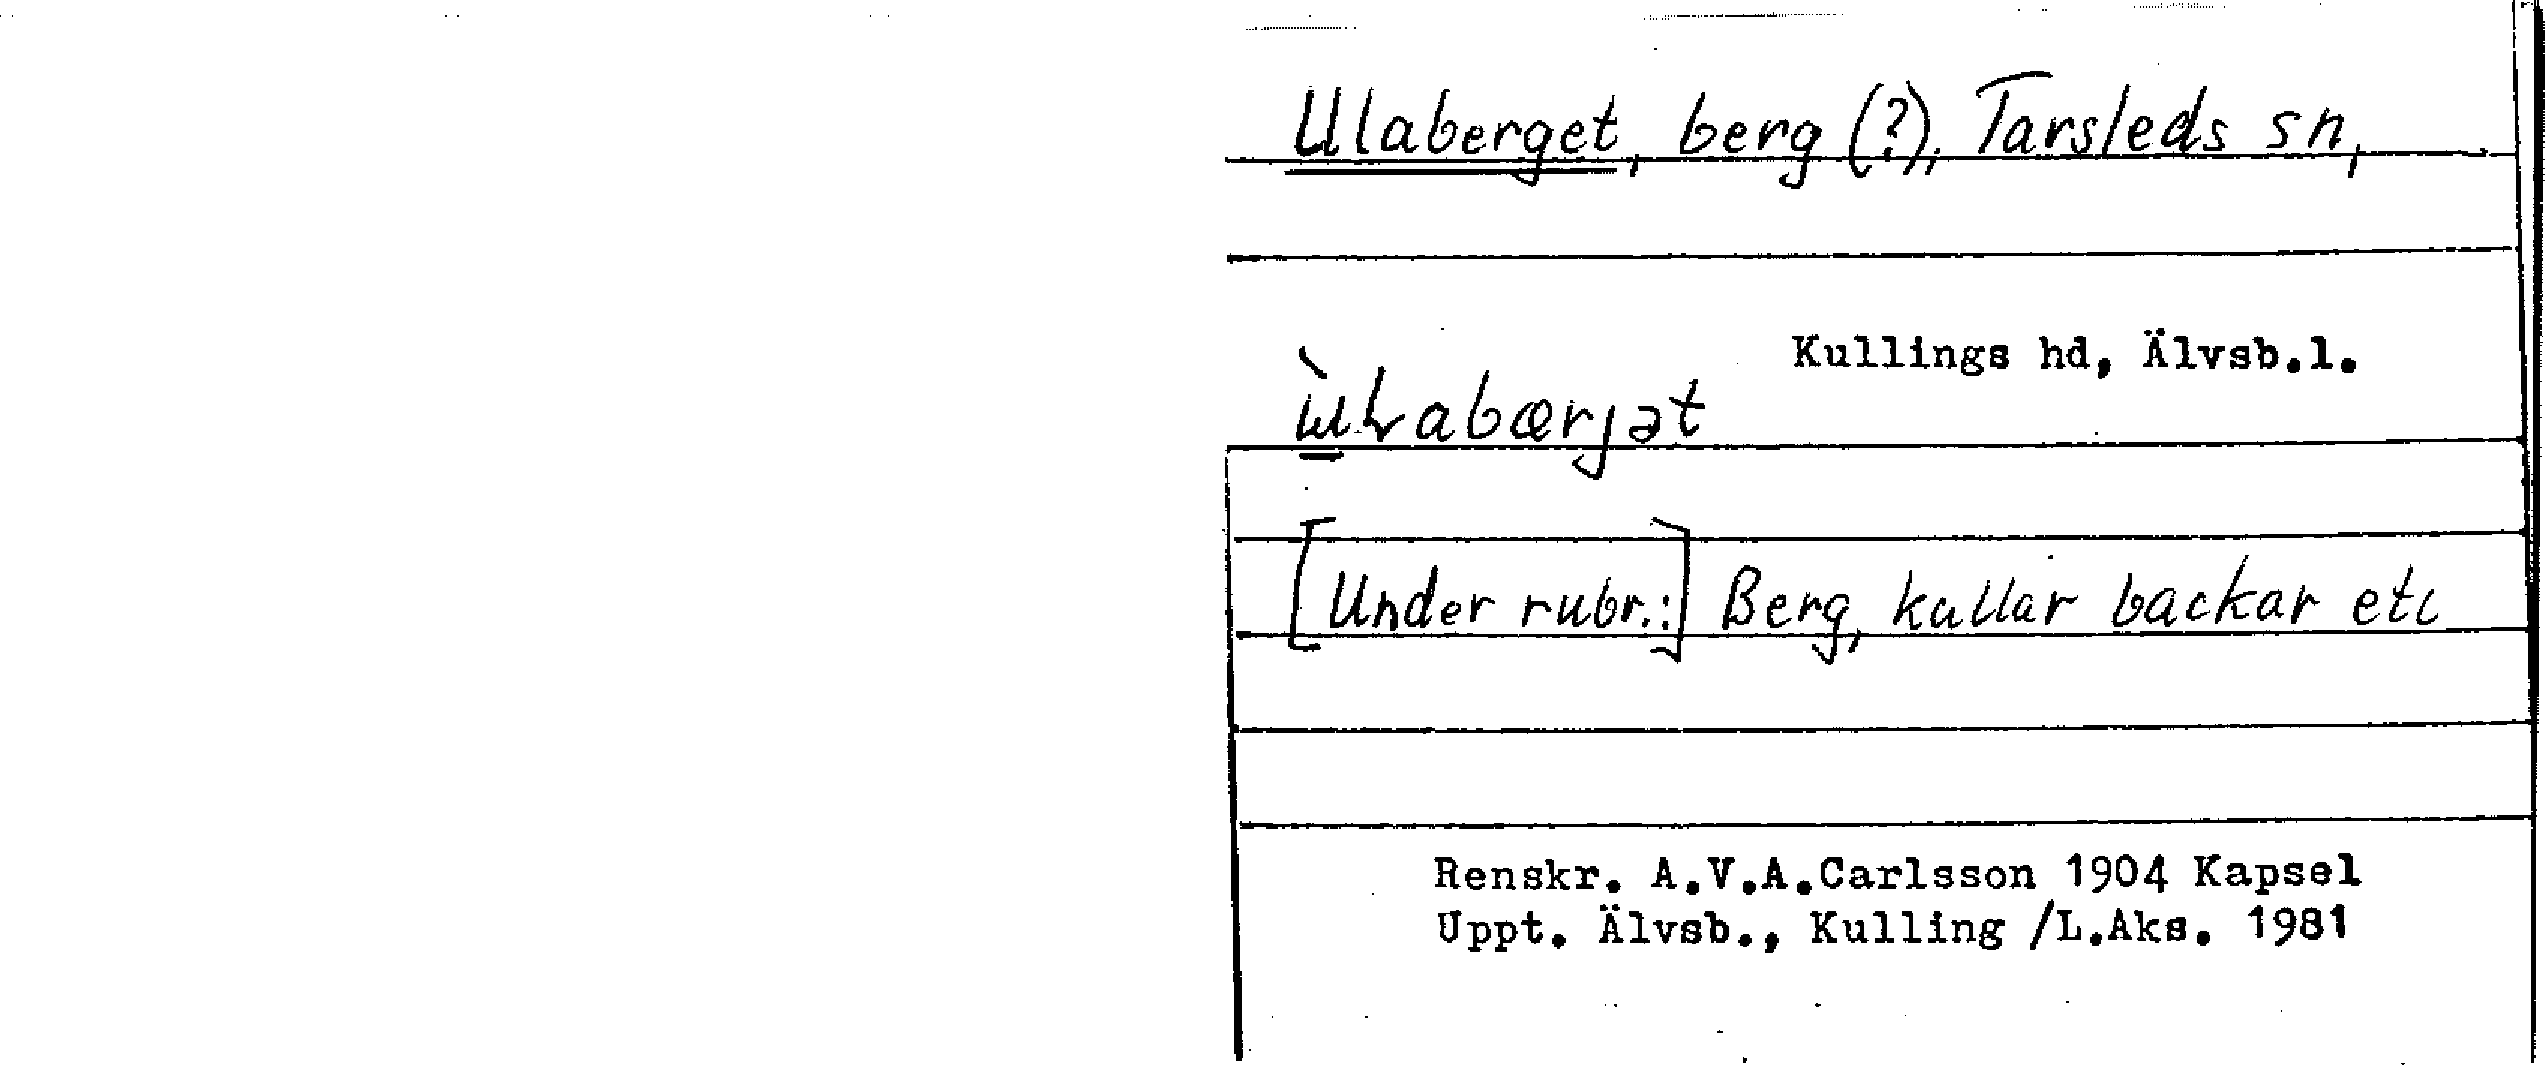 Ulaberget, berg (?), Tarsleds sn,
Kullings hd, Älvsb.l.
[Under rubr.:] Berg, kullar backar etc
Renskr. A.V.A.Carlsson 1904 Kapsel
Uppt. Älvsb., Kulling /L.Aks. 1981